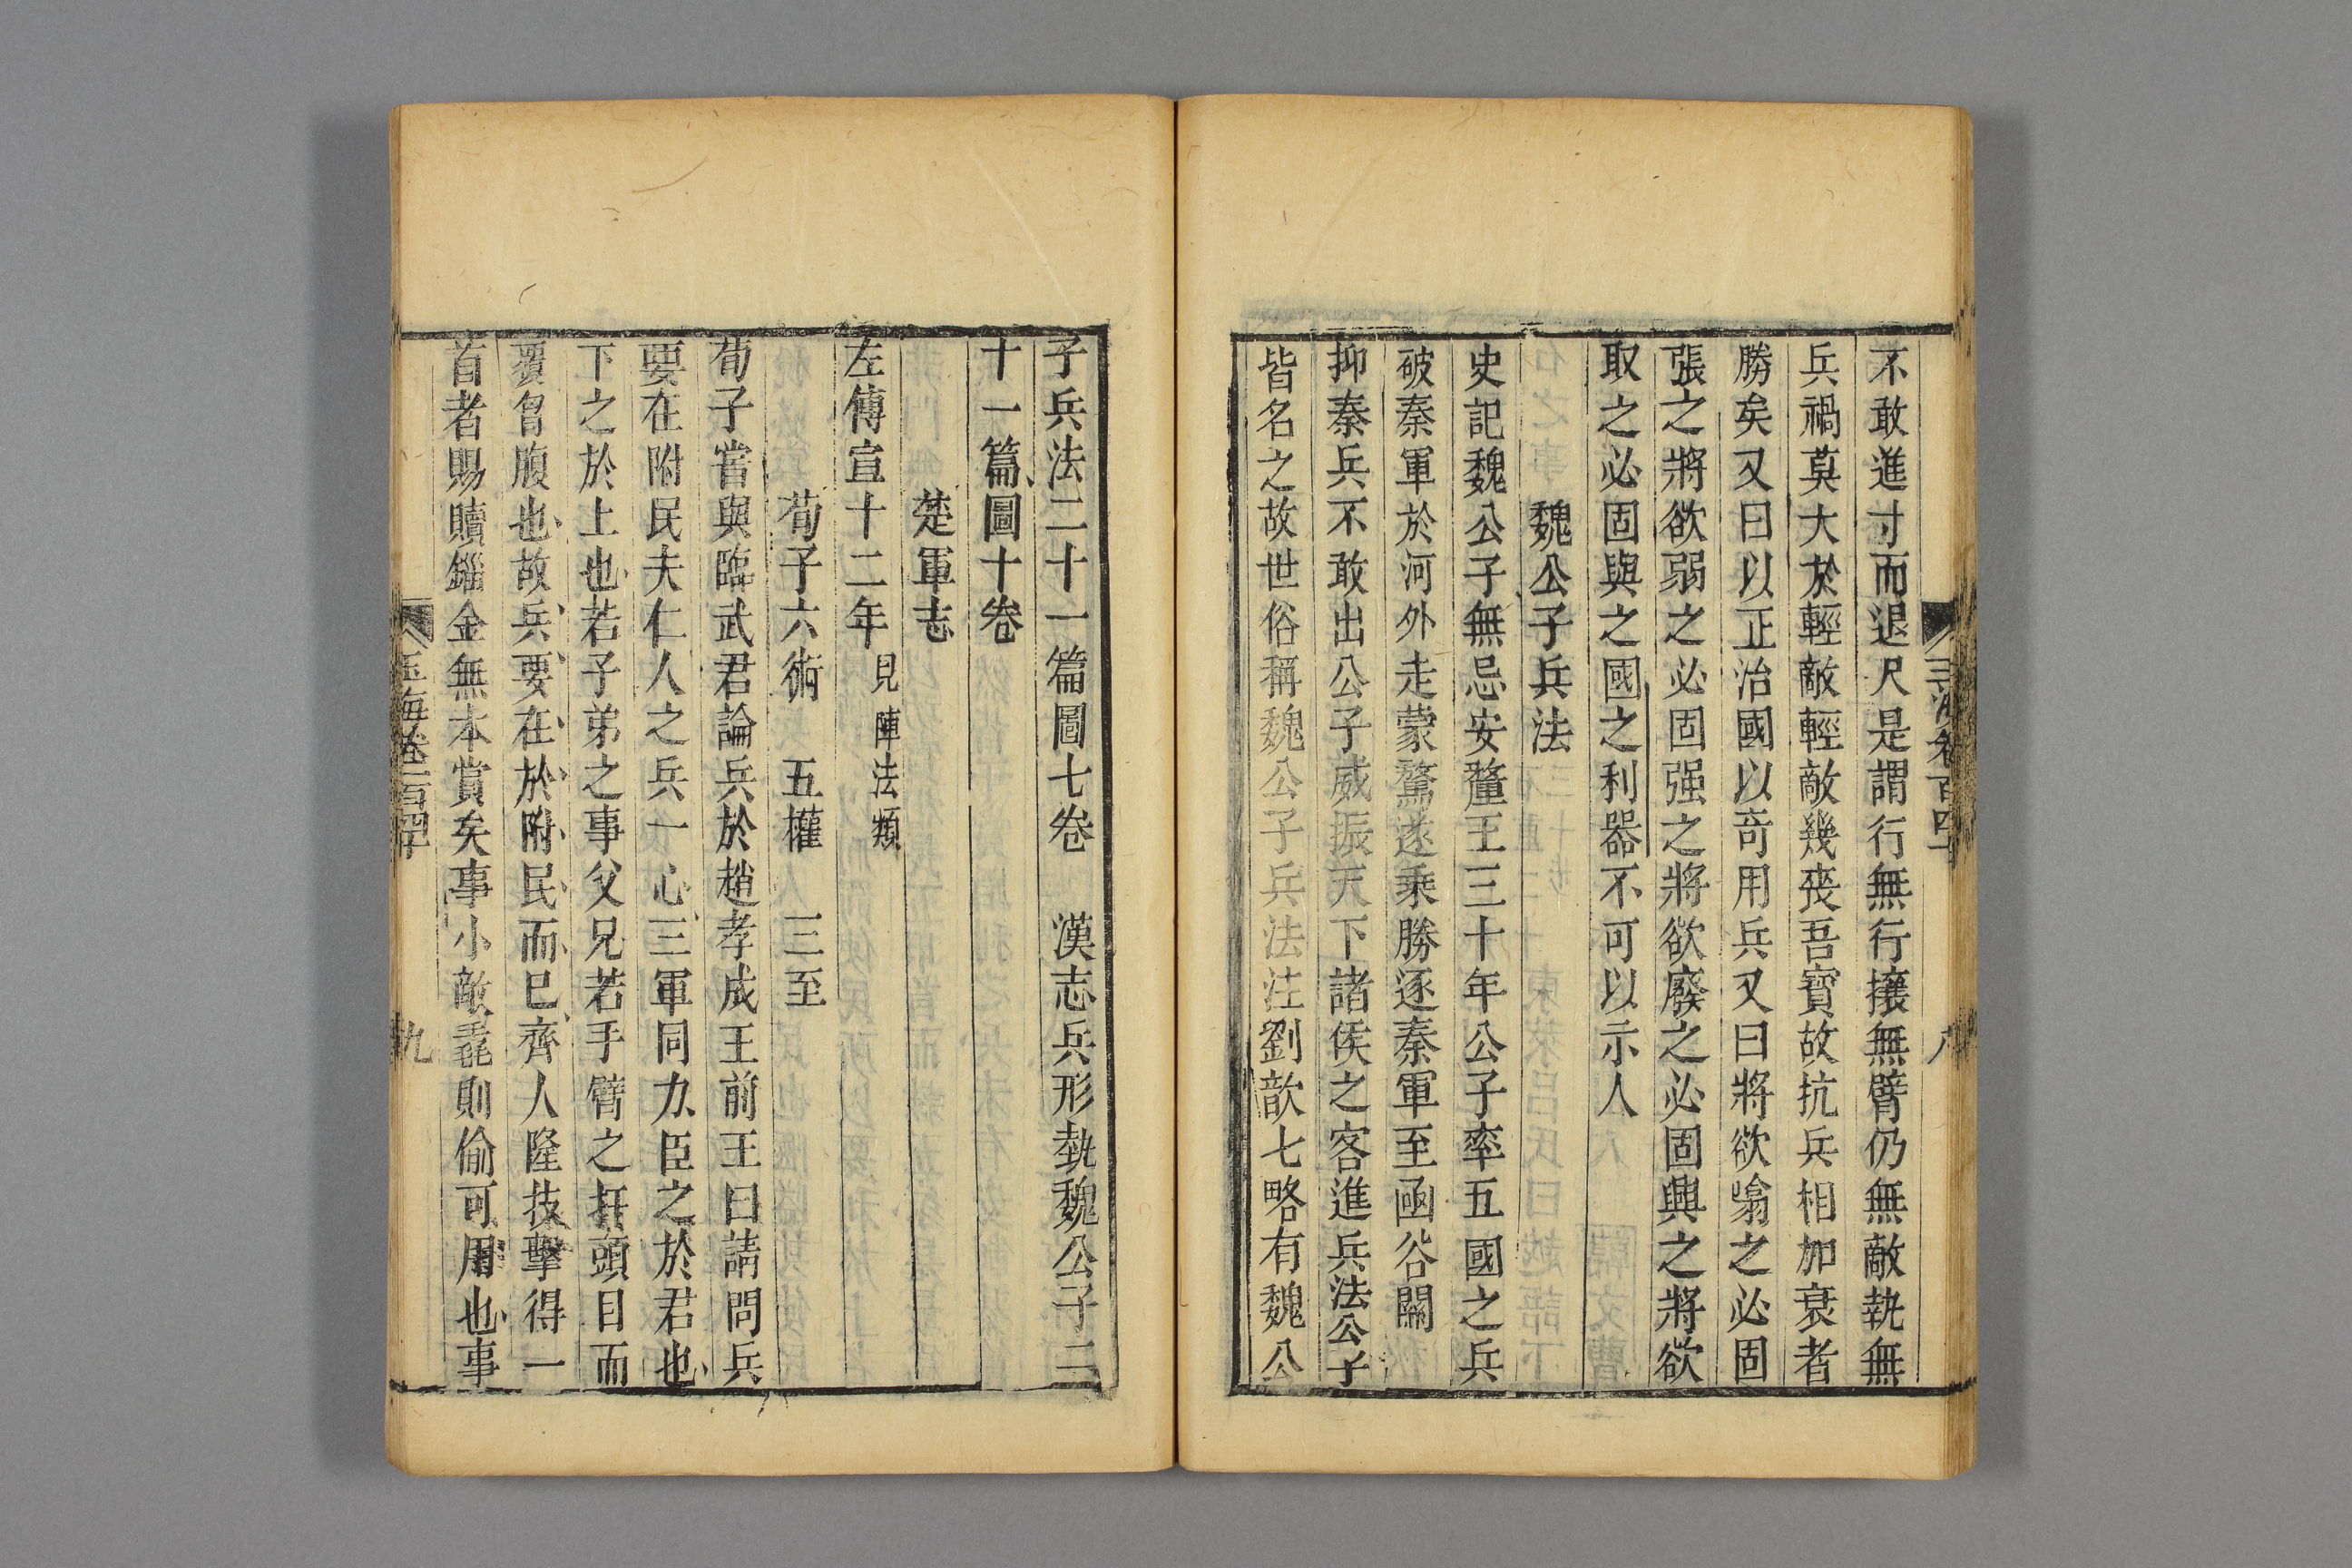 不敢進寸而退尺是謂行無行攘無臂仍無敵執無
兵禍莫大於輕敵輕敵幾喪吾寳故抗兵相加衰者
勝矣又曰以正治國以竒用兵又曰將欲翕之必固
張之將欲弱之必固强之將欲廢之必固興之將欲
取之必固與之國之利器不可以示人
魏公子兵法
史記魏公子無忌安釐王三十年公子率五國之兵
破秦軍於河外走蒙驁遂乘勝逐秦軍至函谷關
抑秦兵不敢出公子威振天下諸侯之客進兵法公子
皆名之故世俗稱魏公子兵法注劉歆七略有魏公
子兵法二十一篇圖七卷 漢志兵形埶魏公子二
十一篇圖十卷
楚軍志
左傳宣十二年見陣法類
荀子六術 五權 三至
荀子嘗與臨武君論兵於趙孝成王前王曰請問兵
要在附民夫仁人之兵一心三軍同力臣之於君也
下之於上也若子弟之事父兄若手臂之扞頭目而
覆胷腹也故兵要在於附民而已齊人隆技擊得一
首者賜贖錙金無本賞矣事小敵毳則偷可用也事
玉海卷一百四十
九